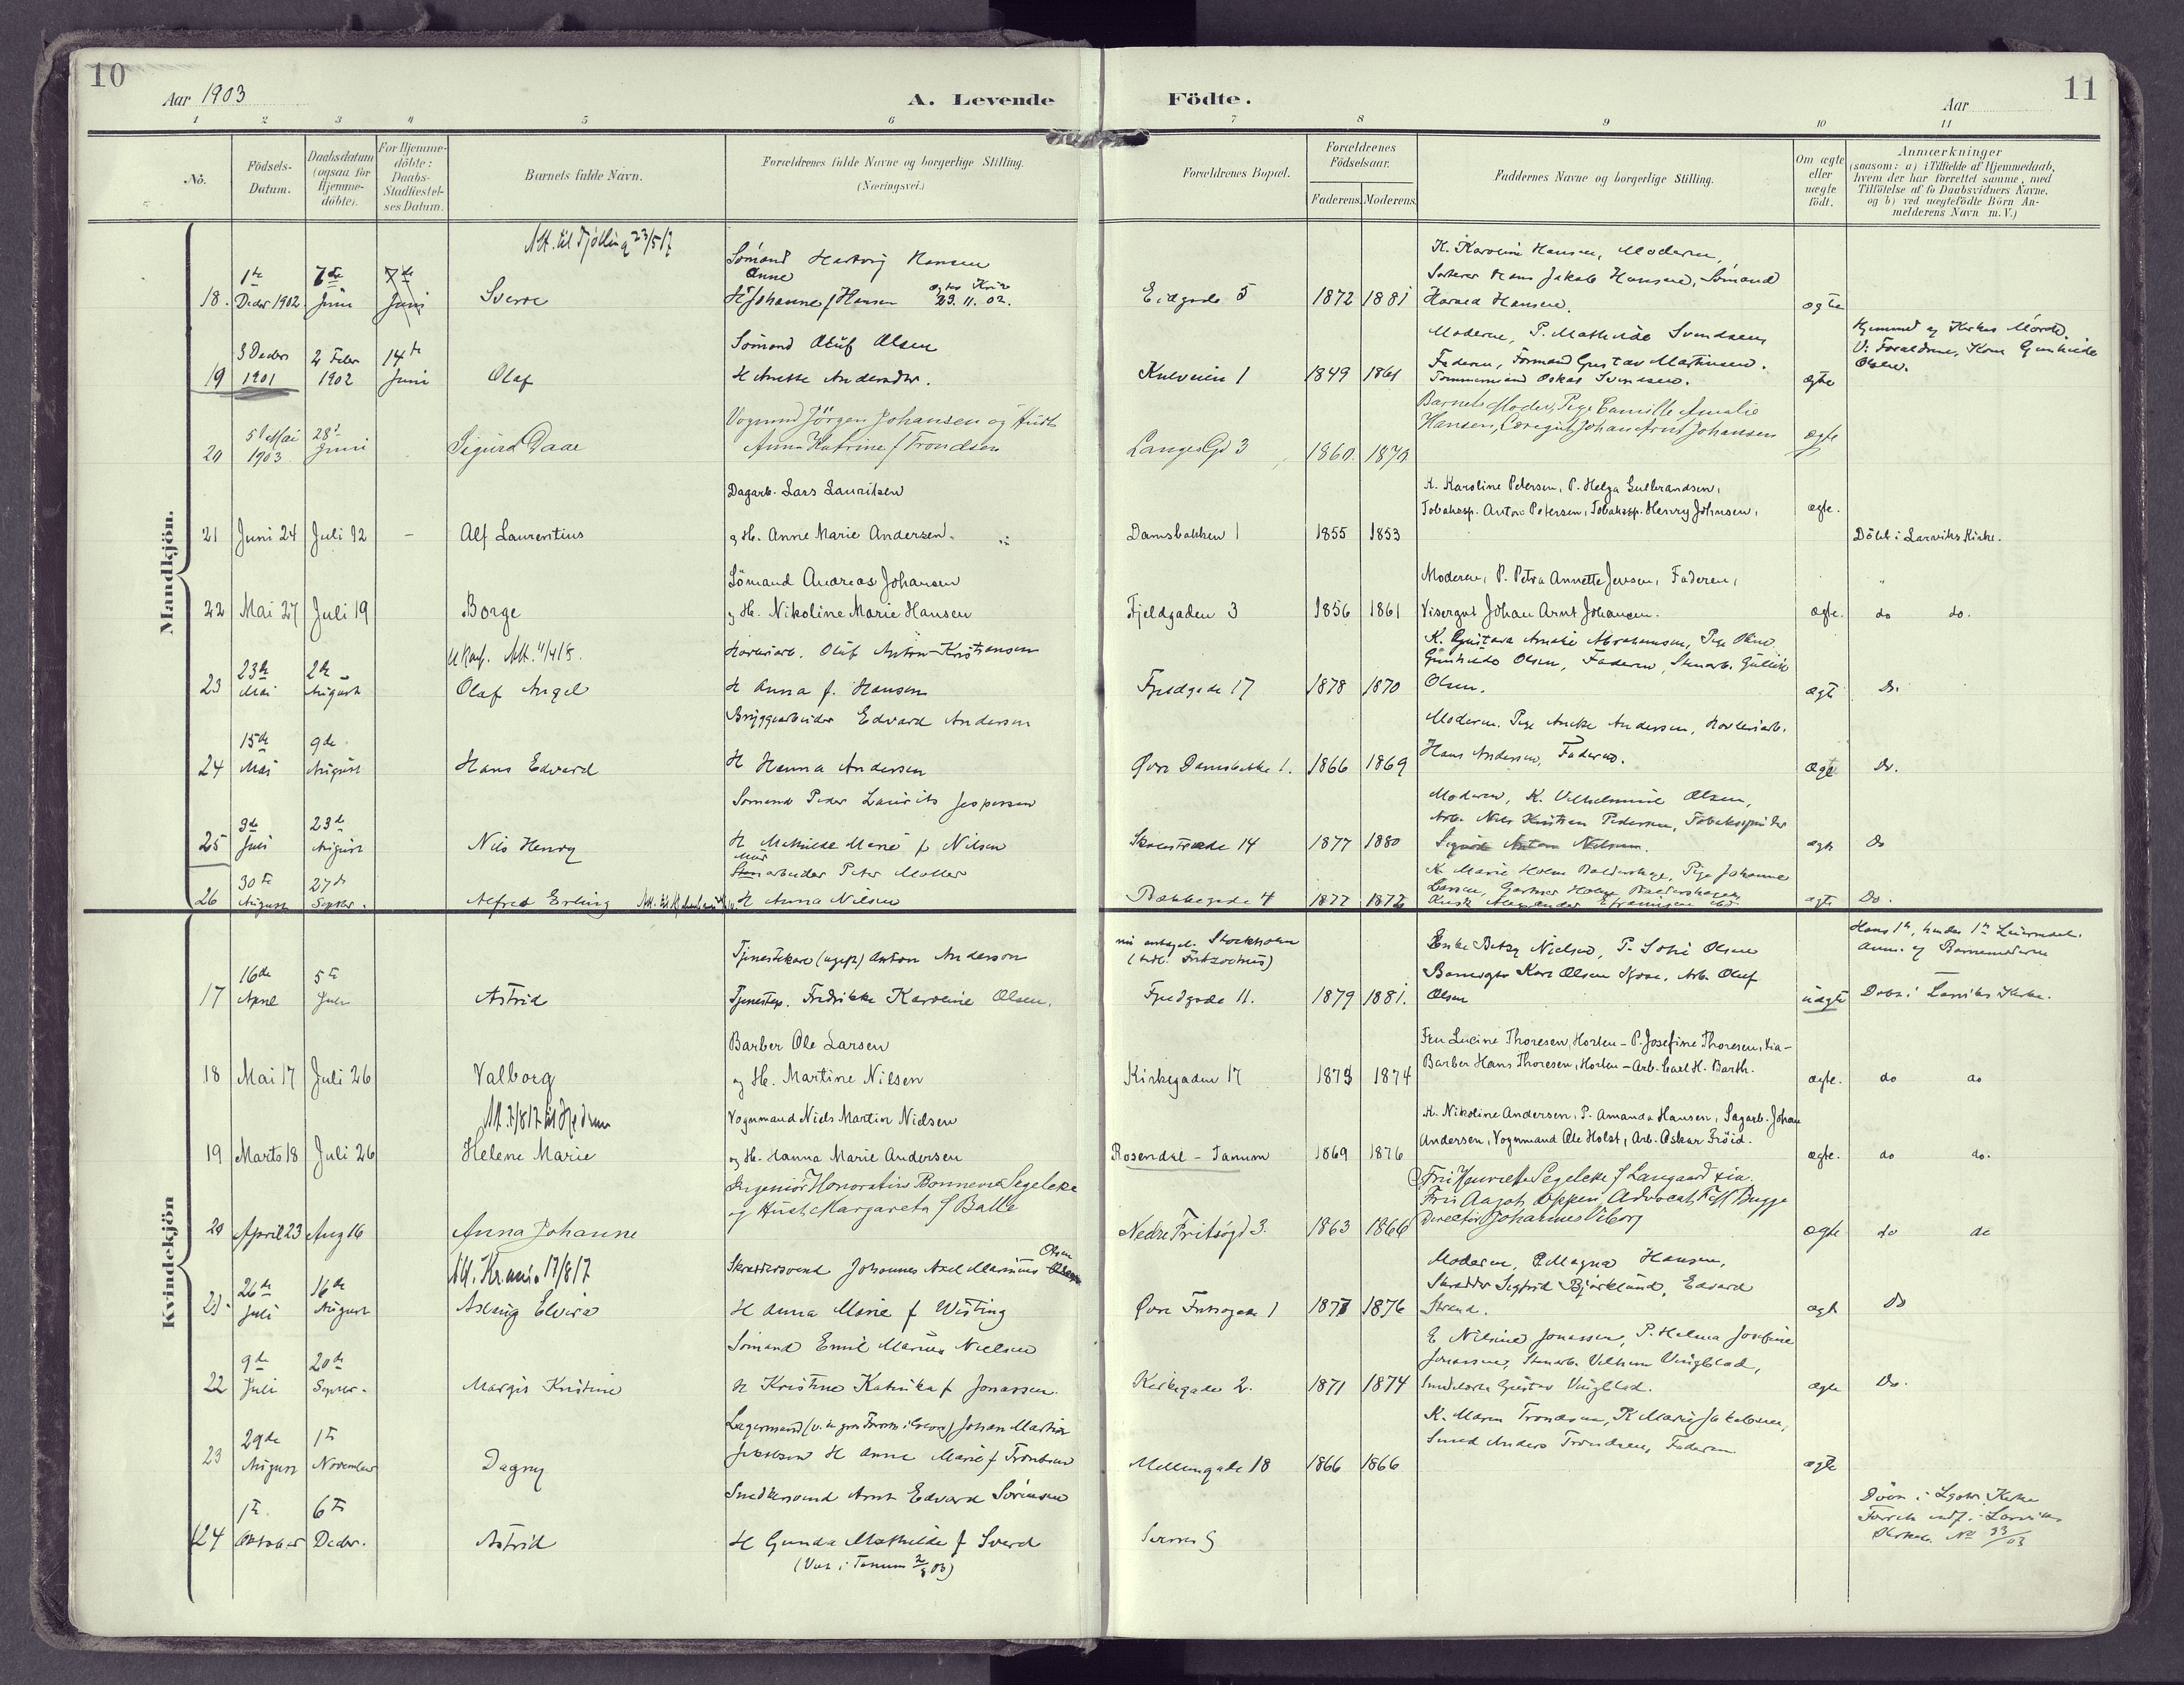 10
Aar 1903
A. Levende
Födte.
Aar
11
1 2 3 4 5 6 7 8 9 10 11
No.
Födsels-
Datum.
Daabsdatum
(ogsaa for
Hjemme-
döbte).
For Hjemme-
döbte:
Daabs-
Stadfæstel-
ses Datum.
Barnets fulde Navn.
Forældrenes fulde Navne og borgerlige Stilling.
(Næringsvei.)
Forældrenes Bopæl.
Forældrenes
Födselsaar.
Faderens. Moderens.
Faddernes Navne og borgerlige Stilling.
Om ægte
eller
uægte
födt.
Anmærkninger
(saasom: a) i Tilfælde af Hjemmedaab,
hvem der har forrettet samme, med
Tilföielse af to Daabsvidners Navne,
og b) ved uægtefödte Börn An-
melderens Navn m. V.)
Mandkjön.
Att. til Tjølling 23/5 17
Sömand Hartvig Hansen
Anne
K. Karoline Hansen, Moderen,
1ste 7de 7de
Hans Jakob Hansen, Sömand
18. Decbr 1902. Juni Juni Sverre H Johanne f Hansen 23.11.02. Eidgade 5 1872 1881 Harald Hansen. ægte
Sömand Oluf Olsen
Moderen, P. Mathilde Svendsen
3 Decbr 2 Febr 14de
Faderen, Formand Gustav Martinsen.
19 1901 1902 Juni Olaf H Anette Andersdtr. Kulveien 1 1849 1861 Tømmermand Oskar Svendsen. ægte
Olsen.
Vognmd Jörgen Johansen og Hust
Barnets Moder, Pige Camilla Amalie
5 Mai 28
Hansen, Johan Arnt Johansen
20 1903 Juni Sigurd Daae Anna Katrine f Trondsen Langes Gd 3 1860 1870 ægte
Dagarb. Lars Lauritsen
K. Karoline Petersen, P. Helga Gulbrandsen,
Tobaksp. Anton Petersen, Tobaksp. Henry Johnsen, ægte.
21 Juni 24 Juli 12 - Alf Laurentius og H. Anne Marie Andersen. Damsbakken 1 1855 1853 Döbt i Larviks Kirke.
Sömand Andreas Johansen
Moderen, P. Petra Annette Jensen, Faderen,
22 Mai 27 Juli 19 Borge og H. Nikoline Marie Hansen Fjeldgaden 3 1856 1861 Visergut Johan Arnt Johansen. ægte. do do.
Ukonf. Att. 11/4 18.
Høvleriarb. Oluf Anton Kristiansen
K. Gustava Amalie Abrahamsen, Pige
23de 2den
Gunhilda Olsen, Faderen, Stenarb. Gullik
23 Mai August Olaf Angel H Anna f. Hansen Fjeldgade 17 1878 1870 Olsen. ægte Do.
Bryggearbeider Edvard Andersen
Moderen, Pige Andersen, Høvleriarb.
15de 9de
24 Mai August Hans Edvard H Hanna Andersen Øvre Damsbakke 1. 1866 1869 Hans Andersen, Faderen. ægte Do.
Sömand Peder Laurits Jespersen
Moderen, K. Vilhelmine Olsen,
3de 23de
Arb. Nils Kristian Pedersen, Tobakspinder
25 Juli August Nils Henry H Mathilde Marie f Nilsen Skolestræde 14 1877 1880 Sigurd Anton Nielsen. ægte Do
Mur
Stenarbeider Peter Møller
K Marie Holm Baldershage, Pige Johanne
30te 27de
Larsen, Gartner Holm Baldershagen
26 August Septbr. Alfred Erling H Anna Nilsen Bakkegade 4 1877 1872 ægte Do.
Kvindekjön
Stockholm
Tjenestekarl (ugift) Anton Anderson
Enke Betzy Nielsen, P. Sofie Olsen
16de 5te
Karl Olsen, Arb. Oluf
17 April Juli Astrid Tjenestep. Fredrikke Karoline Olsen. Fjeldgade 11. 1879 1881. Olsen uægte Döbt i Larviks Kirke.
Barber Ole Larsen
Fru Lucine Thoresen, Horten - P. Josefine Thoresen, Kia -
Barber Hans Thoresen, Horten - Arb. Carl H. Barth.
18 Mai 17 Juli 26 Valborg og H. Martine Nilsen Kirkegaden 17 1873 1874 ægte. do do
Att. 7/8 17 til Hedrum
Vognmand Niels Martin Nielsen
K. Nikoline Andersen, P. Amanda Hansen, Sagarb. Johan
Andersen, Vognmand Ole Holst, Arb. Oskar Fröid.
19 Marts 18 Juli 26 Helene Marie og H. Hanna Marie Andersen Rosendal - Tanum 1869 1876 ægte. do do.
Ingeniör Honoratius Bonnevie Segelcke
og Hust. Margareta f Balle
Fru Henriette Segelcke f Langaard Kia
Frk Aagot Oppen, Advocat Bugge
20 April 23 Aug 16 Anna Johanne Nedre Fritsögd 3. 1863 1866 Director Johannes Viborg ægte do do
Att. Krania 17/8 17
Olsen
Skræddersvend Johannes Axel Marinius
Moderen, P. Magna Hansen,
26de 16de
Skrædder Sigfrid Bjørklund, Edvard
21. Juli August Aslaug Elvira H Anna Marie f Wisting Øvre Fritsøgade 1 1877 1876 Strand. ægte Do
Sömand Emil Marius Nielsen
E Nilsine Jonassen, P. Helma Josefine
9de 20de
Jonassen, Stenarb. Vilhelm Vingblad,
22 Juli Septbr. Margit Kristine H Kristine Katrika f Jonassen. Kirkegade 2. 1871 1874 Gustav Vingblad. ægte Do.
Johan Martin
K. Maren Trondsen, K Marie Jakobsen,
29de 1te
Smed Anders Trondsen, Faderen
23 August November Dagny Jakobsen H Anne Marie f Trondsen Mellemgade 18 1866 1866 ægte
Snedkersvend Arnt Edvard Sörensen
1te 6te
24 Oktober Decbr. Astrid H Gunda Mathilde f Sverd
Larviks
No 33/03